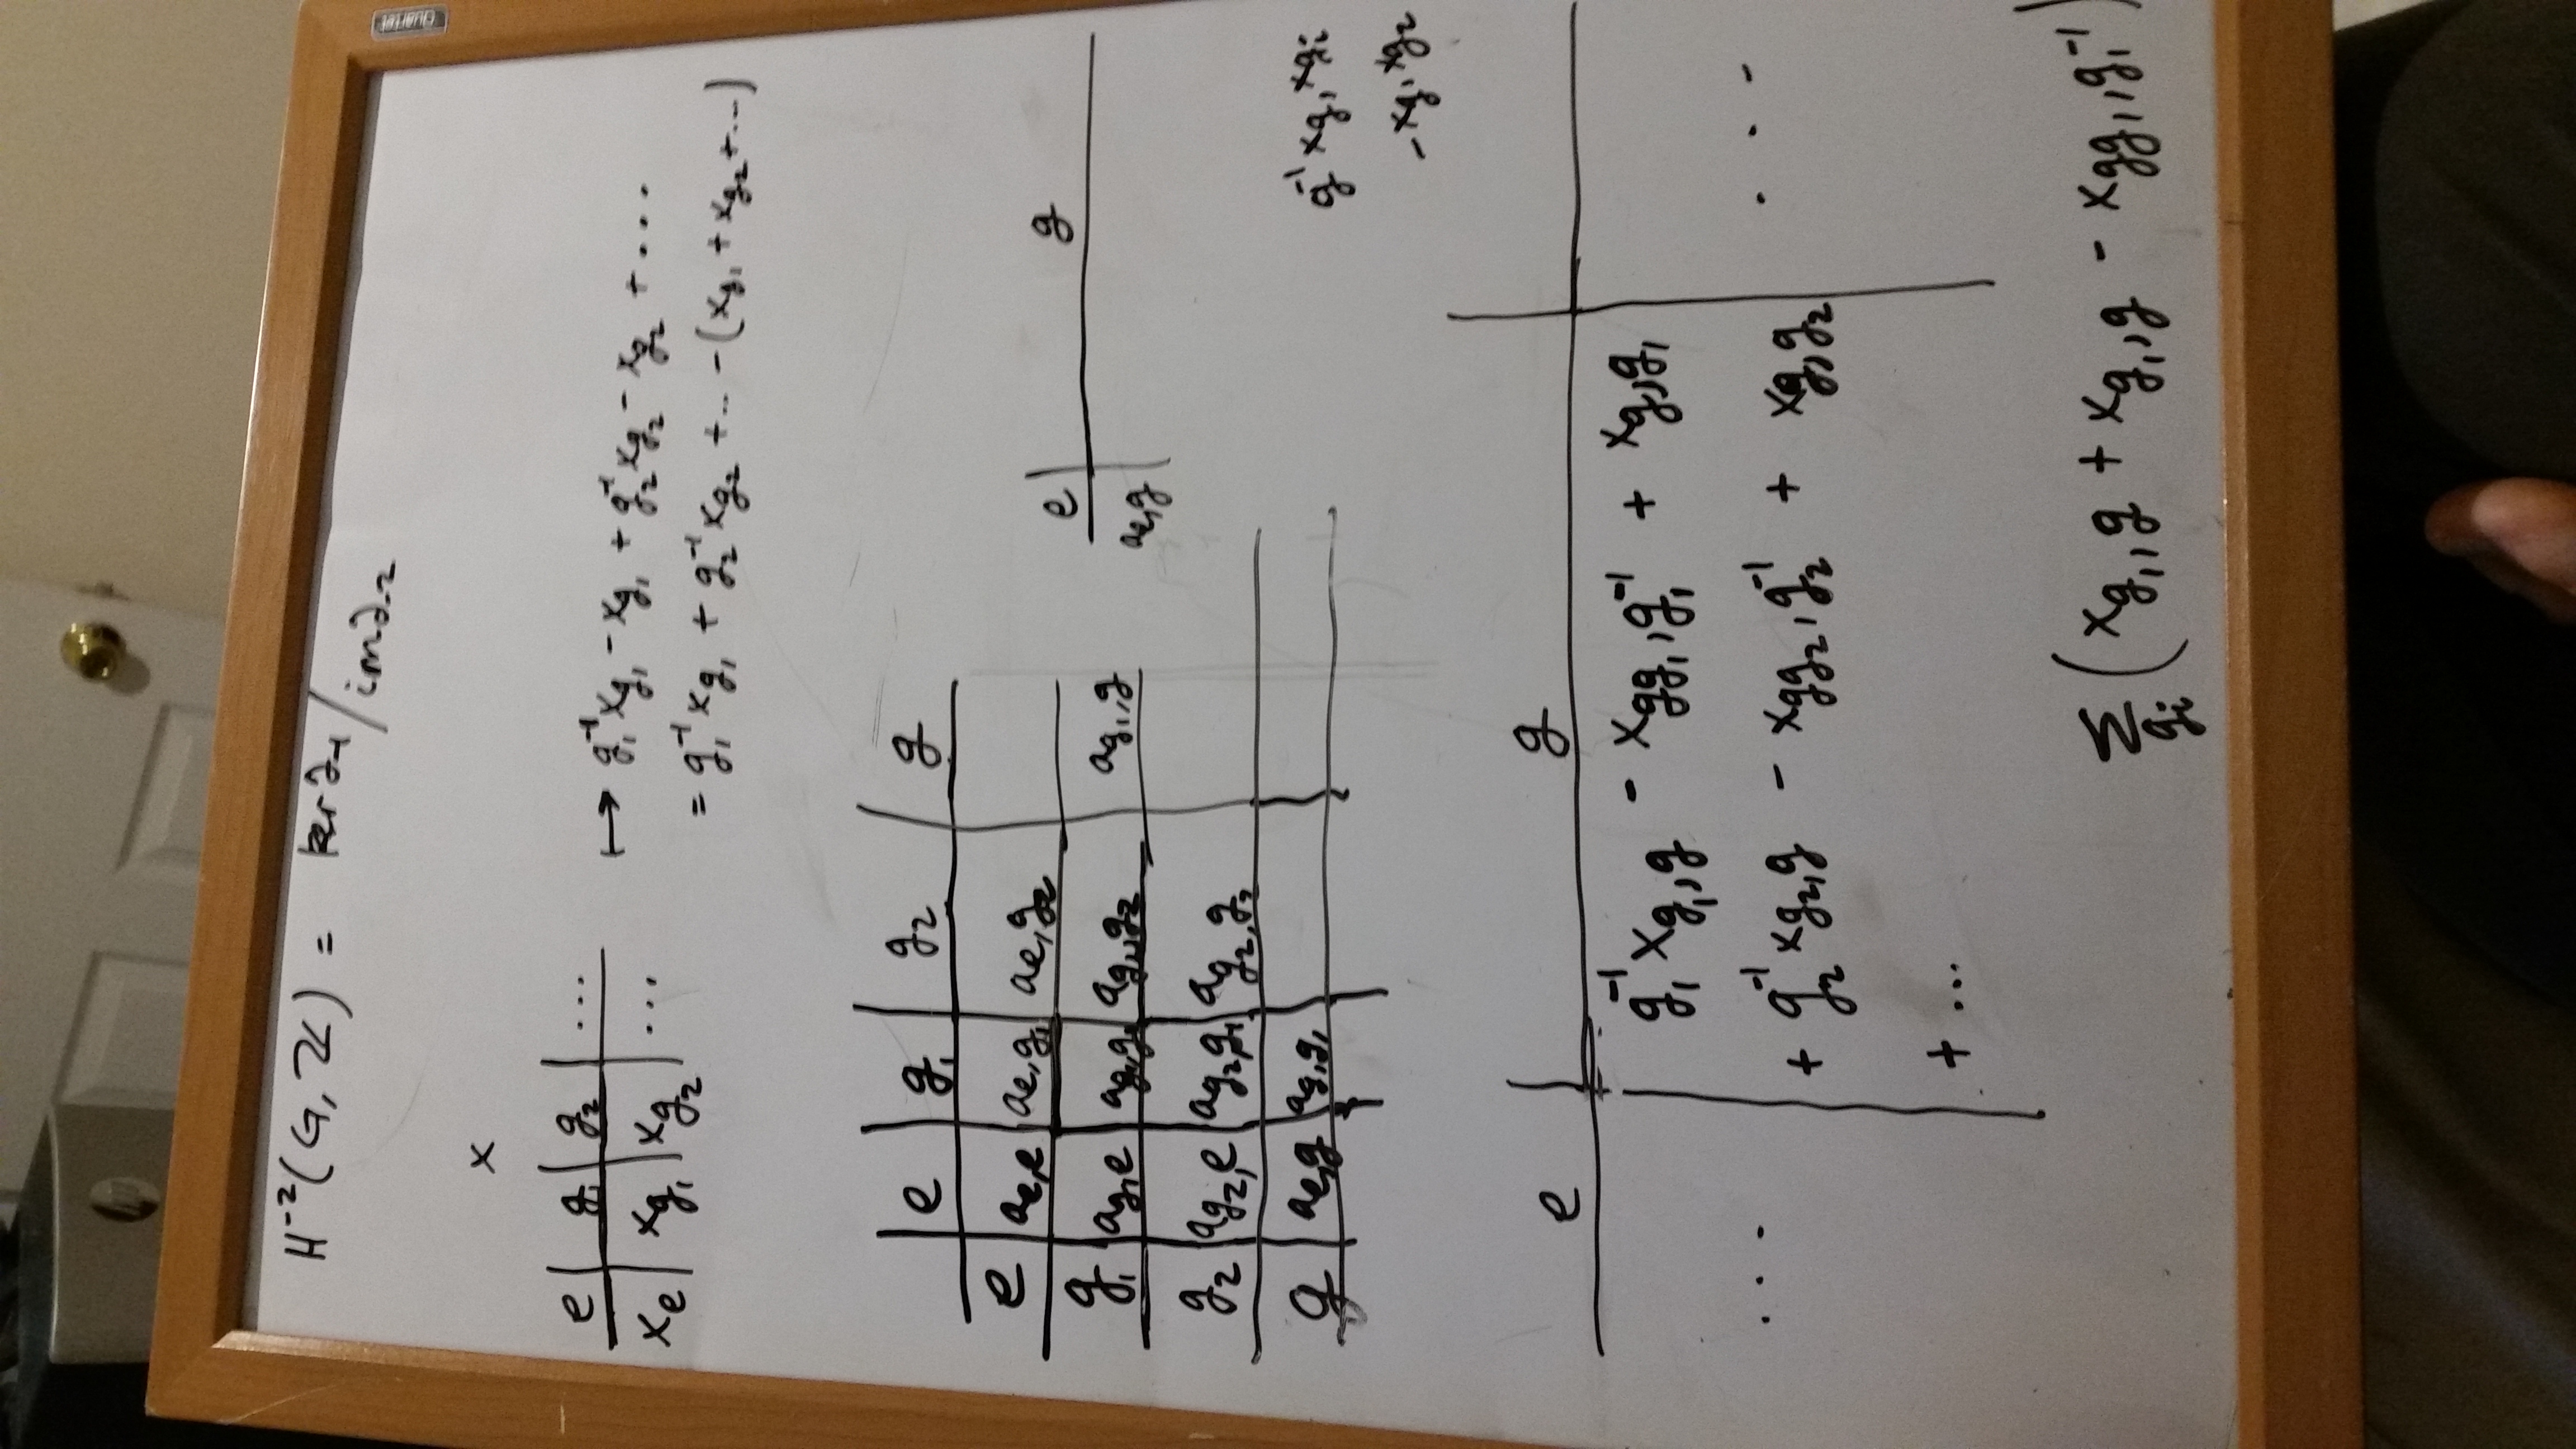 hp
Quartet
H⁻²(G, ℤ) = ker ∂₋₁ / im ∂₋₂
x
e | g₁ | g₂ | ...
xₑ | x_g₁ | x_g₂ | ...
↦ g₁⁻¹x_g₁ - x_g₁ + g₂⁻¹x_g₂ - x_g₂ + ...
= g₁⁻¹x_g₁ + g₂⁻¹x_g₂ + .. - (x_g₁ + x_g₂ + ...)
| e | g₁ | g₂ | g
e | a_e,e | a_e,g₁ | a_e,g₂ |
g₁ | a_g₁,e | a_g₁,g₁ | a_g₁,g₂ | a_g₁,g
g₂ | a_g₂,e | a_g₂,g₁ | a_g₂,g₂ |
g | a_e,g | a_g,g₁ | |
e | g
a_e,g |
g⁻¹ x_g, x_gᵢ
- x_g₁ x_g₂
e | g |
... | g₁⁻¹ x_g₁,g - x_gg₁,g₁⁻¹ + x_g,g₁ | ...
+ g₂⁻¹ x_g₂,g - x_gg₂,g₂⁻¹ + x_g,g₂
+ ...
Σ_gᵢ ( x_g₁,g + x_g₁,g - x_gg₁,g₁⁻¹ )